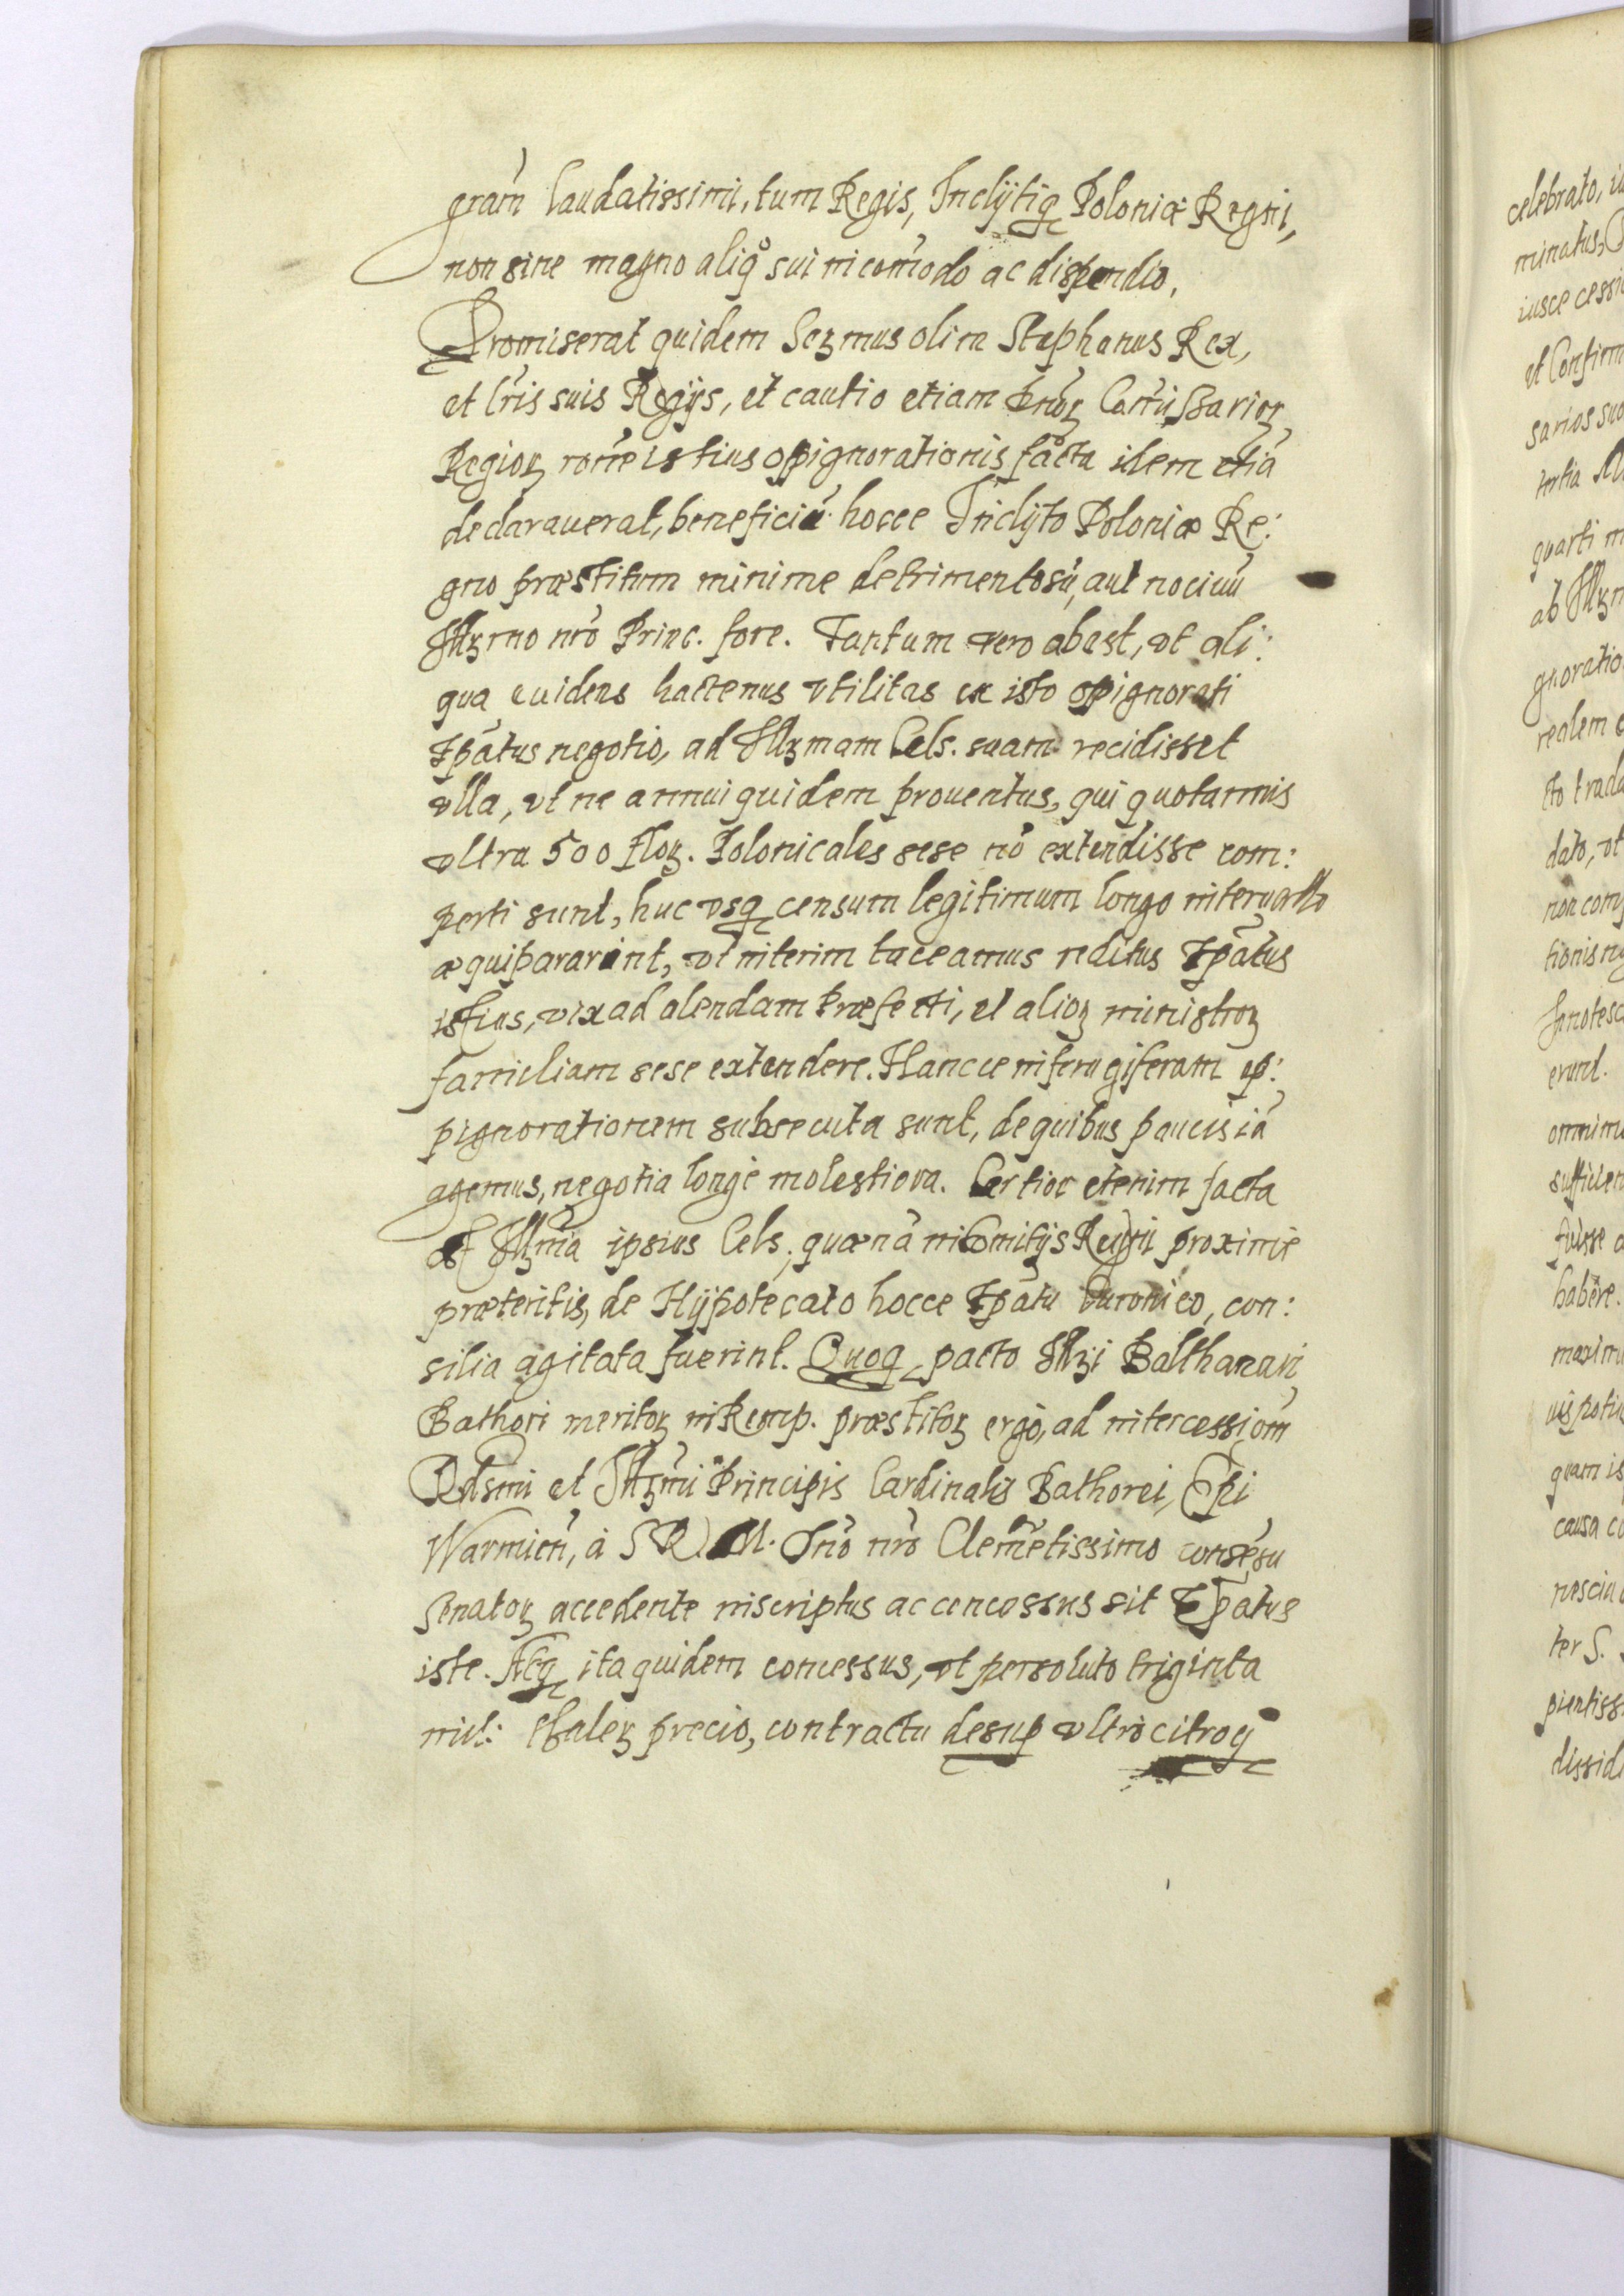 gram̃ laudatissimi, tum Regis, Inclÿtiq̃ Poloniæ Regni,
non sine magno aliqͦ sui incom̃odo ac dispendio,
Promiserat quidem Sezmus olim Stephanus Rex,
et lr̃is suis Regÿs, et cautio etiam Dñoꝝ Com̃issarioꝝ
Regioꝝ nom̃e istius opignorationis facta idem etiã
declaraverat, beneficiũ hocce Inclÿto Poloniæ Re:
gno præstitum minime detrimentosũ, aut nociuũ
Illꝫmo nr̃o Princ. fore. Tantum vero abest, vt ali:
qua euidens hactenus vtilitas ex isto opignorati
Tp̃atus negotio, ad Illꝫmam Cels. suam recidisset
vlla, vt ne annui quidem prouentus, qui quotannis
vltra 500 floꝝ. Polonicales sese nõ extendisse com:
perti sunt, huc vsq̃ censum legitimum longo interuallo
æquipararint, vt interim taceamus reditus Tp̃atus
istius, vix ad alendam Præfecti, et alioꝝ ministroꝝ
familiam sese extendere. Hancce infrugiferam op:
pignorationem subsecuta sunt, de quibus paucis iã
agemus, negotia longè molestiora. Certior etenim facta
est Illꝫm̃a ipsius Cels. quænã in Comitÿs Regni proximè
præteritis, de Hÿpotecato hocce Tp̃atu Curonico, con:
silia agitata fuerint. Quoq̃ pacto Illꝫi Balthazari
Bathori meritoꝝ in Remp. præstitoꝝ ergò, ad intercessiom̃
Rdsmi et Illꝫm̃i Principis Cardinalis Bathorei, Ep̃i
Warmieñ, à S R. M. Dño nr̃o Clemẽtissimo consẽsu
Senatoꝝ accedente inscriptus ac concessus sit Tp̃atus
iste. Atq̃ ita quidem concessus, vt persoluto triginta
mil: thaleꝝ precio, contractu desup vltrò citroq̃